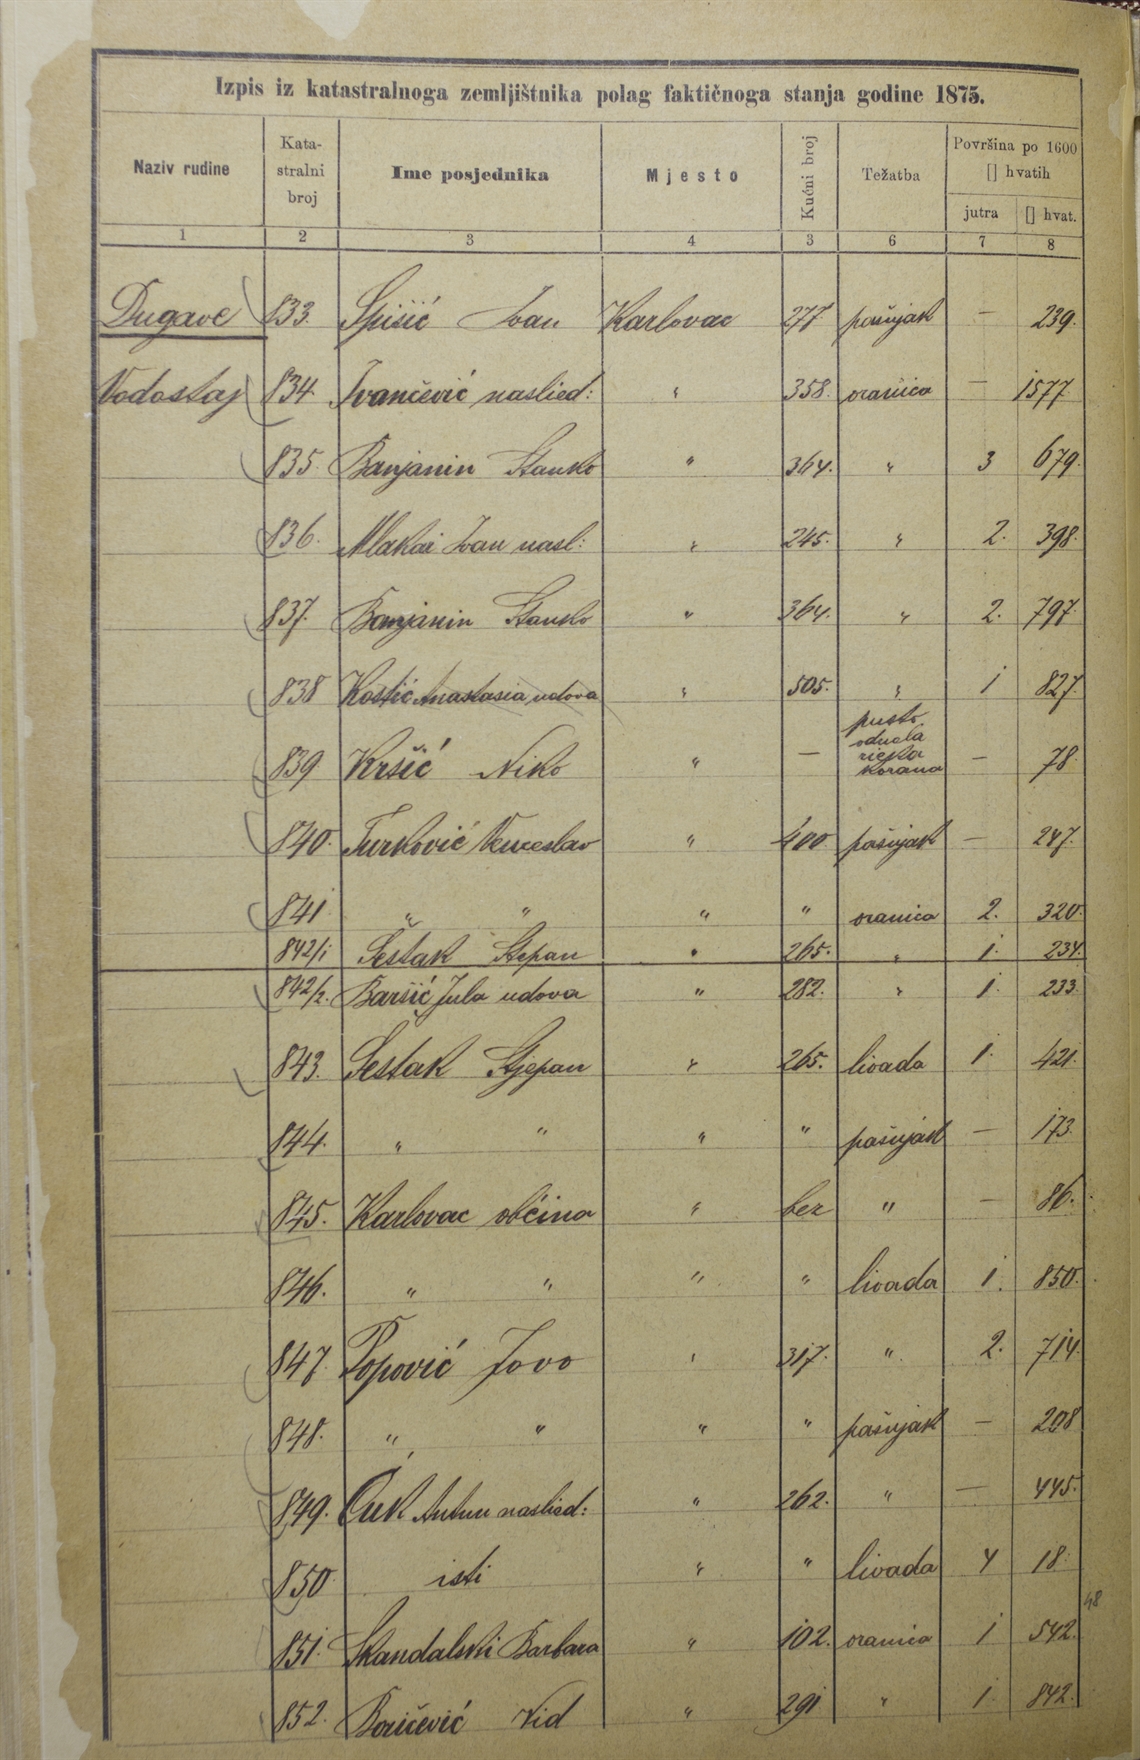 Izpis iz katastralnoga zemljištnika polag faktičnoga stanja godine 1875.
Naziv rudine Katastralni broj Ime posjednika Mjesto Kućni broj Težatba Površina po 1600 [] hvatih
jutra [] hvat.
1 2 3 4 3 6 7 8
Dugave 833. Spišić Ivan Karlovac 277 pašnjak — 239.
Vodostaj 834. Ivančević naslied: " 358. oranica — 1577.
835. Banjanin Stanko " 364. " 3 679.
836. Mlakai Ivan nasl: " 245. " 2. 398.
837. Banjanin Stanko " 364. " 2. 797.
838 Kostić Anastasia udova " 505. " 1 827.
839 Kršić Niko " — pusto. oduela rieka Korana — 78.
840. Turković Venceslav " 400 pašnjak — 247.
841 " " " " oranica 2. 320.
842/1 Šestak Stepan " 265. " 1. 234.
842/2. Baršić Jula udova " 282. " 1. 233.
843. Šestak Stjepan " 265. livada 1. 421.
844. " " " " pašnjak — 173.
845. Karlovac občina " bez " — 86.
846. " " " " livada 1. 850.
847. Popović Jovo " 317. " 2. 714.
848. " " " " pašnjak — 208
849. Čuk Antun naslied: " 262. " — 445.
850 isti " " livada 4 18.
48
851. Skandalski Barbara " 102. oranica 1 542.
852. Boričević Vid " 291 " 1 842.